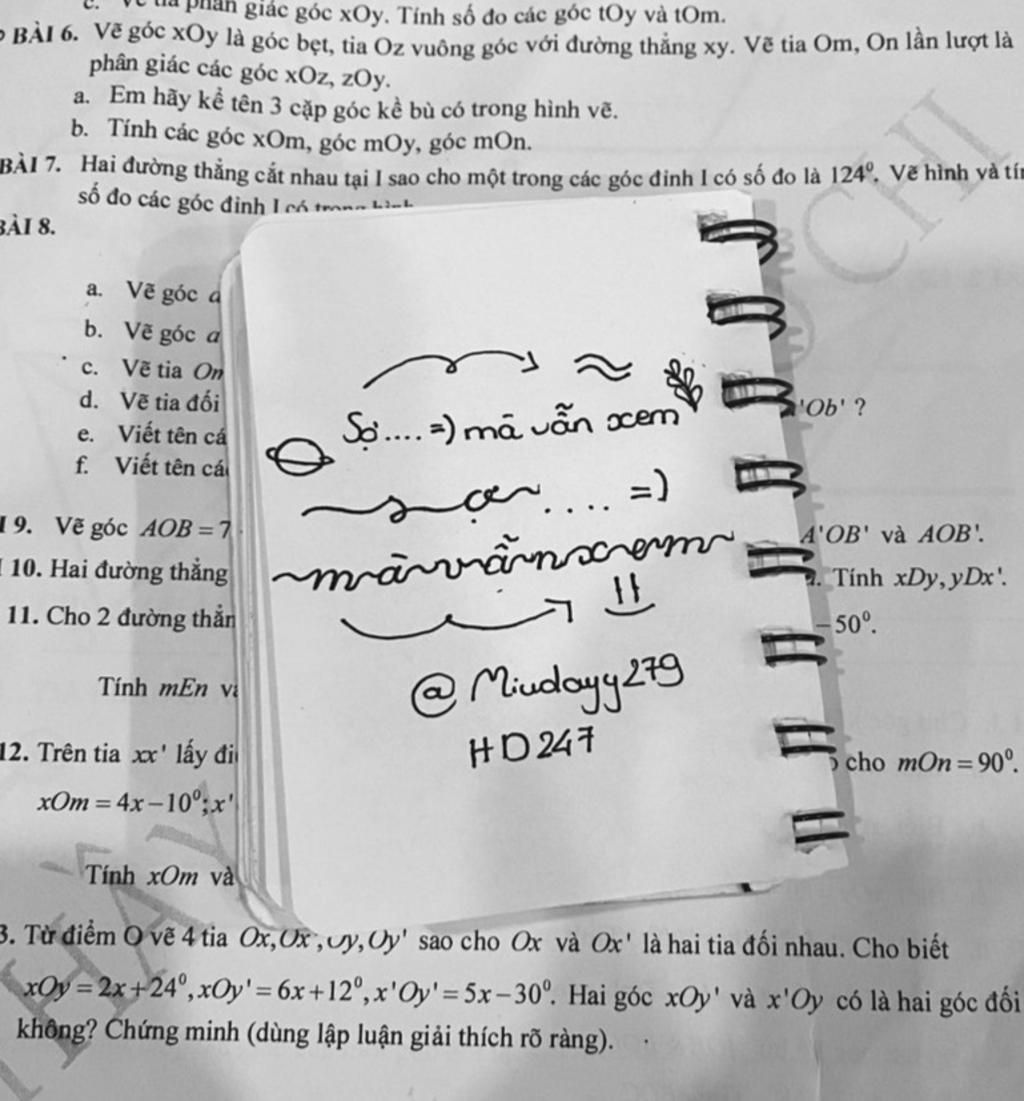 phân giác góc xOy. Tính số đo các góc tOy và tOm.
BÀI 6. Vẽ góc xOy là góc bẹt, tia Oz vuông góc với đường thẳng xy. Vẽ tia Om, On lần lượt là
phân giác các góc xOz, zOy.
a. Em hãy kể tên 3 cặp góc kề bù có trong hình vẽ.
b. Tính các góc xOm, góc mOy, góc mOn.
BÀI 7. Hai đường thẳng cắt nhau tại I sao cho một trong các góc đỉnh I có số đo là 124⁰. Vẽ hình và
số đo các góc đỉnh I có trong hình
BÀI 8.
a. Vẽ góc
b. Vẽ góc
c. Vẽ tia Om
d. Vẽ tia đối
'Ob' ?
e. Viết tên
f. Viết tên
Sợ.... =) mà vẫn xem
sợ.... =)
mà vẫn xem
@Miudayy279
HD247
9. Vẽ góc AOB = 7
A'OB' và AOB'.
10. Hai đường thẳng
Tính xDy, yDx'.
11. Cho 2 đường
-50⁰.
Tính mEn
12. Trên tia xx' lấy
cho mOn = 90⁰.
xOm = 4x-10⁰; x'
Tính xOm và
3. Từ điểm O vẽ 4 tia Ox, Ox', Oy, Oy' sao cho Ox và Ox' là hai tia đối nhau. Cho biết
xOy = 2x+24⁰, xOy' = 6x+12⁰, x'Oy' = 5x-30⁰. Hai góc xOy' và x'Oy có là hai góc đối
không? Chứng minh (dùng lập luận giải thích rõ ràng).
THẦY
CHI